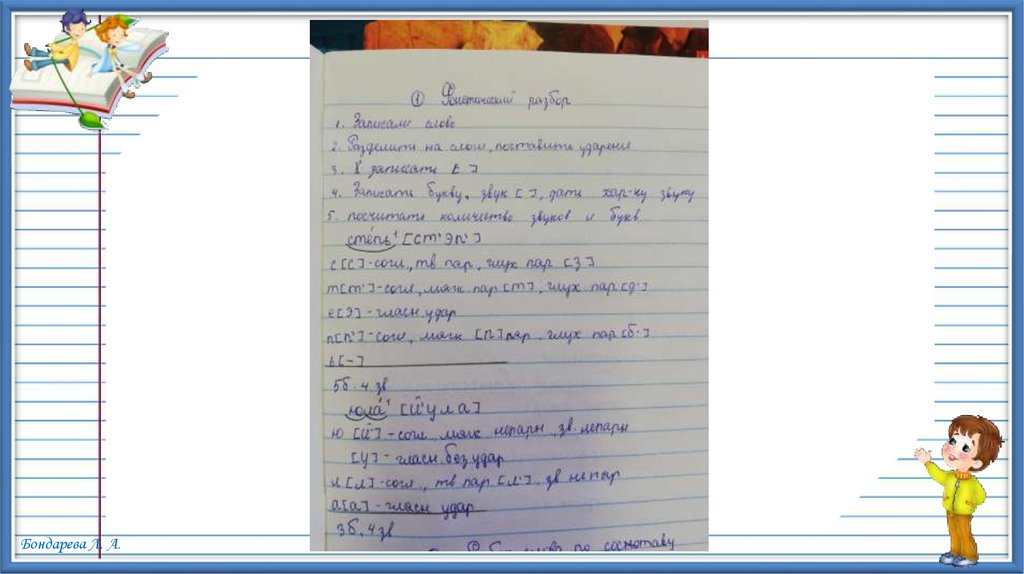 ① Фонетический разбор
1. Записали слово
2. Разделить на слоги, поставить ударение
3. Х записать [ ]
4. Записать букву, звук [ ], дать хар-ку звуку
5. посчитать количество звуков и букв
сте́пь¹ [ст'эп']
с[с]-согл., тв пар, глух пар [з]
т[т']-согл, мягк. пар [т], глух. пар [д']
е[э]-гласн. удар
п[п']-согл, мягк [п] пар. глух пар [б']
ь[-]
5б. 4 зв
юла́¹ [й'ула]
ю [й']-согл. мягк непарн, зв. непарн
[у]-гласн. безудар
л[л]-согл., тв пар [л'], зв непар
а[а]-гласн удар
3б. 4 зв
слова по составу
Бондарева Л. А.